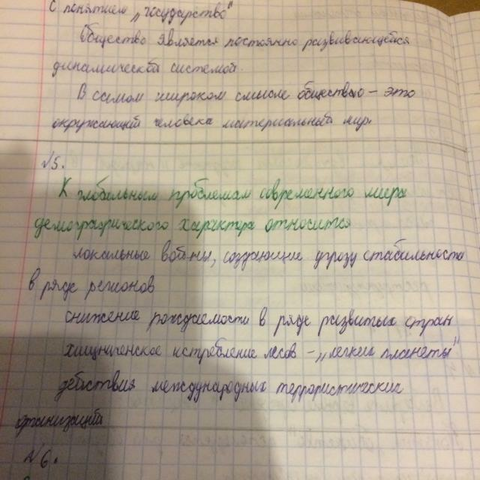 с понятием „государство"
Общество является постоянно развивающейся
динамической системой.
В самом широком смысле общество – это
окружающий человека материальный мир.
№5.
К глобальным проблемам современного мира
демографического характера относится
локальные войны, создающие угрозу стабильности
в ряде регионов
снижение рождаемости в ряде развитых стран
хищническое истребление лесов – „легких планеты"
действия международных террористических
организаций
№6.